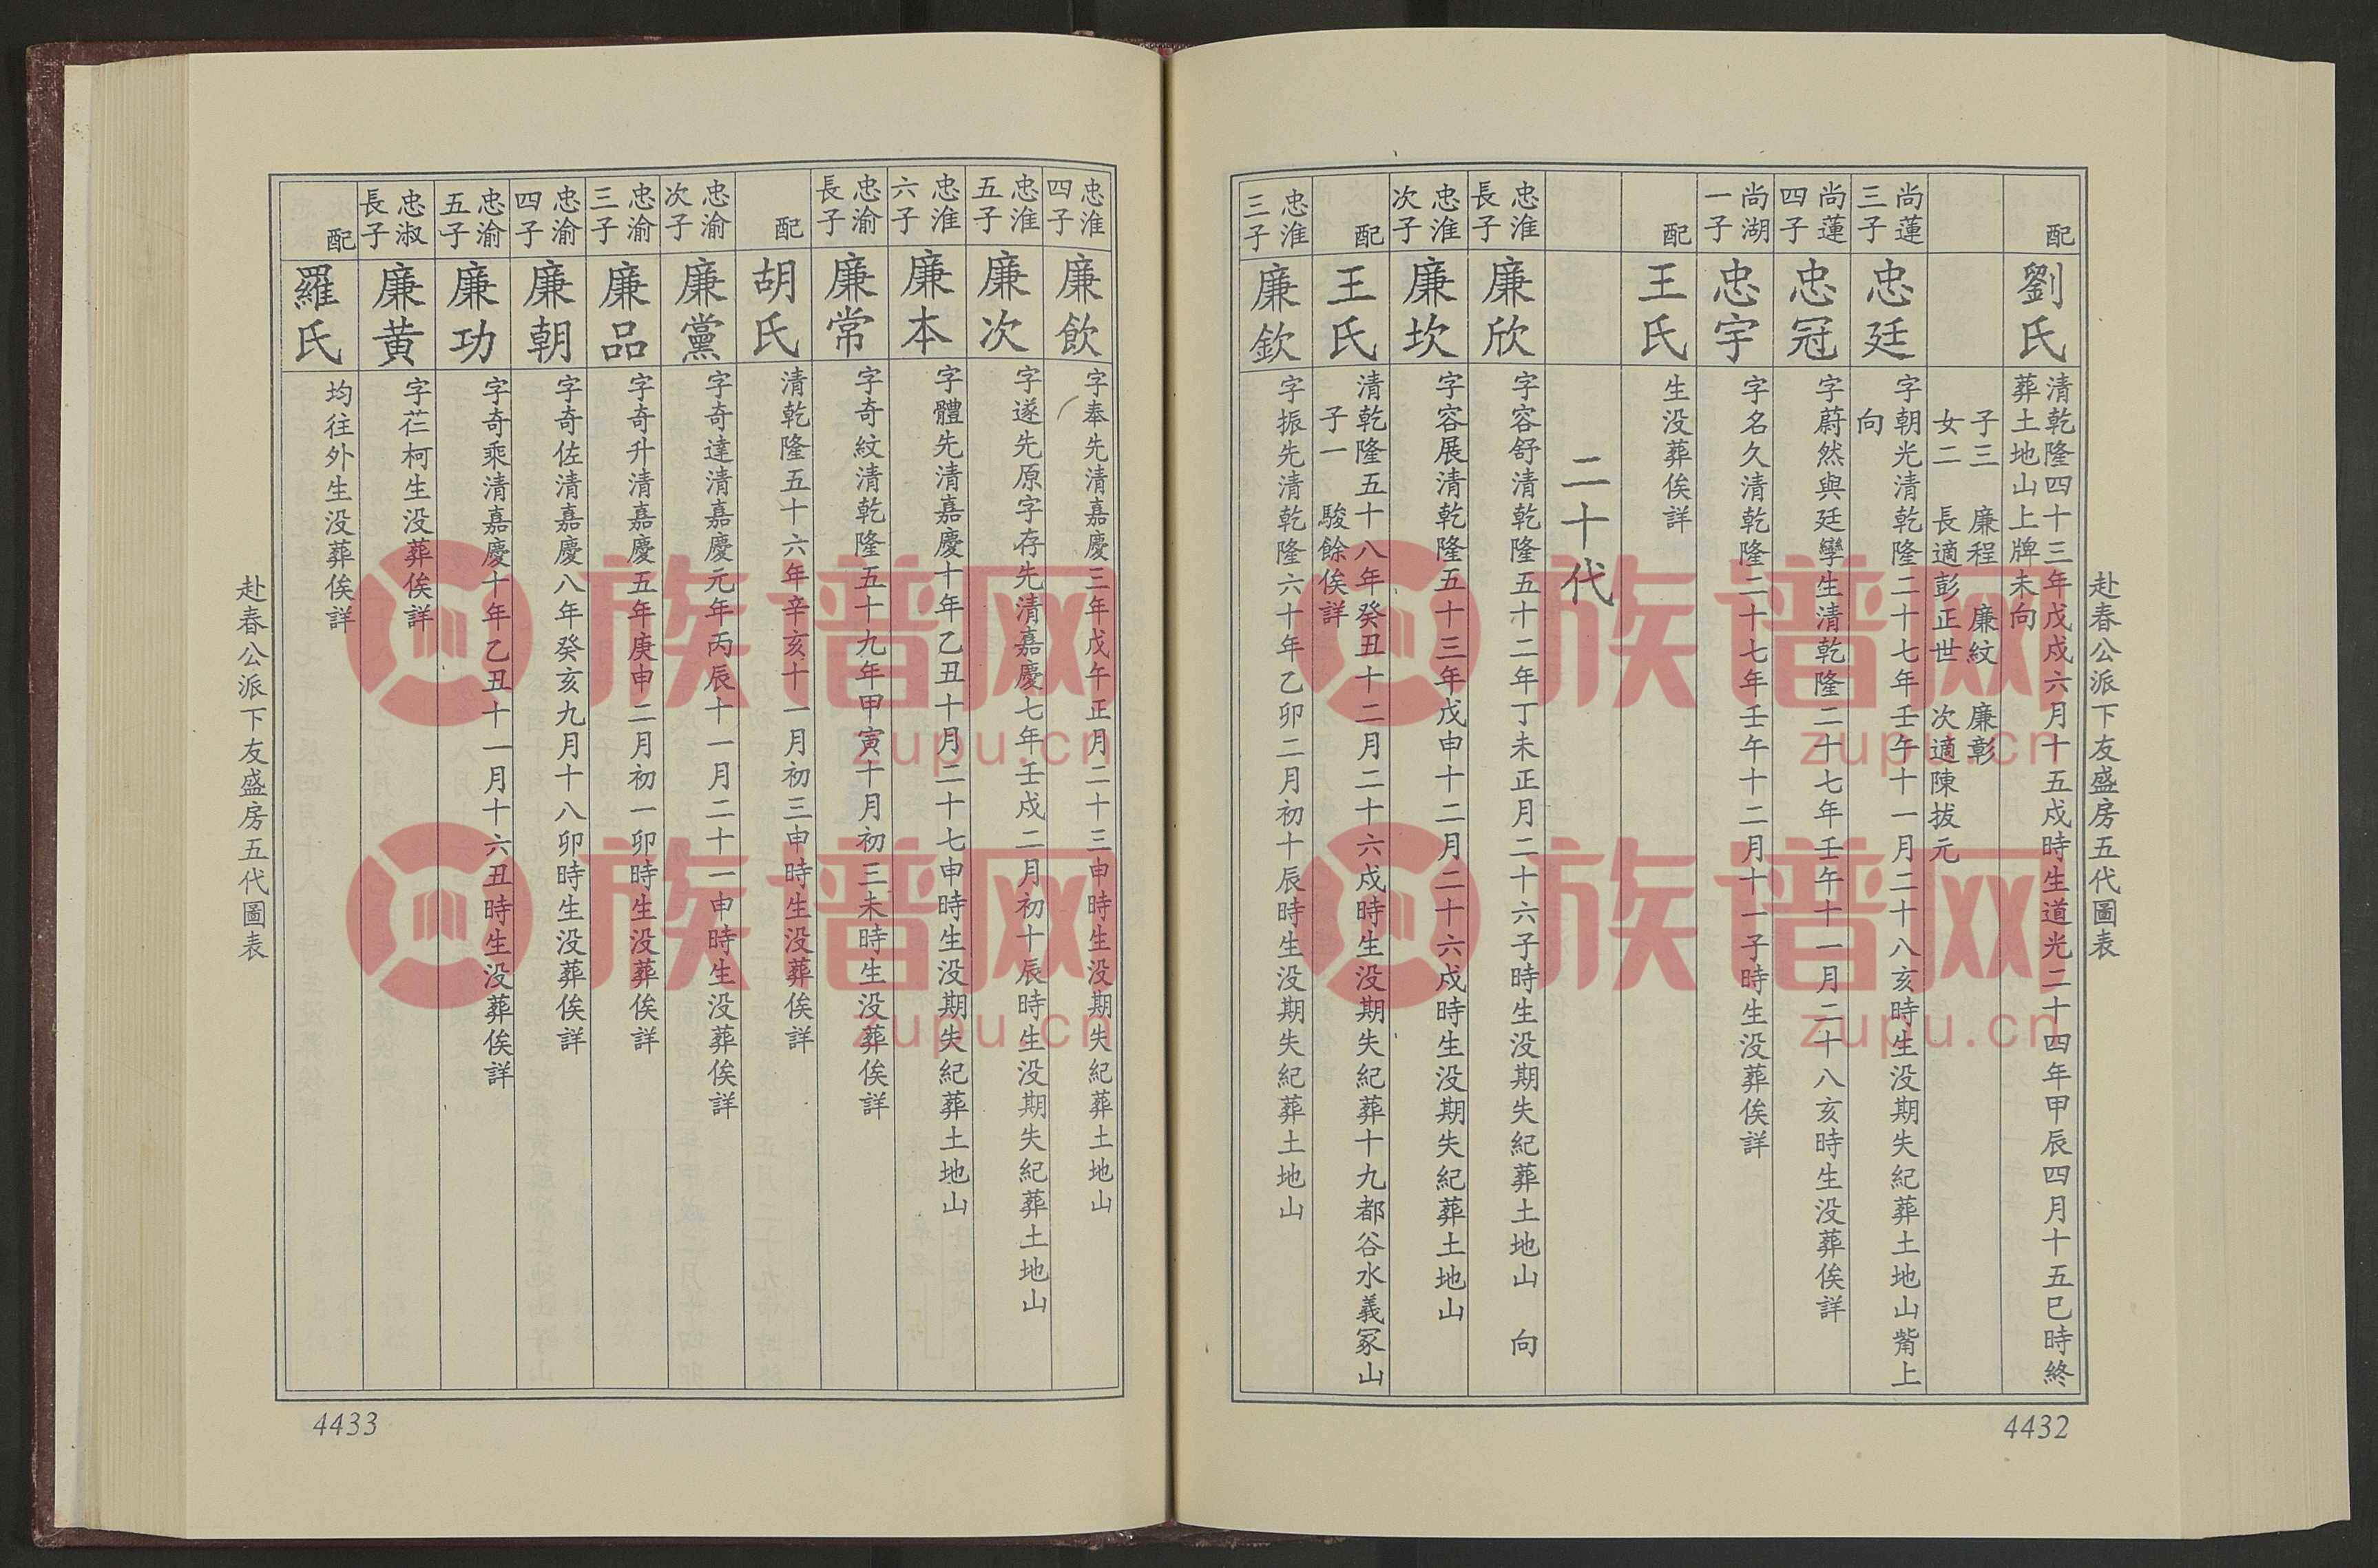 赴春公派下友盛房五代圖表
配
劉氏
清乾隆四十三年戊戌六月十五戌時生道光二十四年甲辰四月十五巳時終
葬土地山上牌未向
子三 廉程 廉紋 廉彰
女二 長適彭正世 次適陳拔元
尚蓮
三子
忠廷
字朝光清乾隆二十七年壬午十一月二十八亥時生没期失紀葬土地山觜上
向
尚蓮
四子
忠冠
字蔚然與廷孿生清乾隆二十七年壬午十一月二十八亥時生没葬俟詳
尚湖
一子
忠宇
字名久清乾隆二十七年壬午十二月十一子時生没葬俟詳
配
王氏
生没葬俟詳
二十代
忠淮
長子
廉欣
字容舒清乾隆五十二年丁未正月二十六子時生没期失紀葬土地山 向
忠淮
次子
廉坎
字容展清乾隆五十三年戊申十二月二十六戌時生没期失紀葬土地山
配
王氏
清乾隆五十八年癸丑十二月二十六戌時生没期失紀葬十九都谷水義冢山
子一 駿餘俟詳
忠淮
三子
廉欽
字振先清乾隆六十年乙卯二月初十辰時生没期失紀葬土地山
4432
忠淮
四子
廉飲
字奉先清嘉慶三年戊午正月二十三申時生没期失紀葬土地山
忠淮
五子
廉次
字遂先原字存先清嘉慶七年壬戌二月初十辰時生没期失紀葬土地山
忠淮
六子
廉本
字體先清嘉慶十年乙丑十月二十七申時生没期失紀葬土地山
忠渝
長子
廉常
字奇紋清乾隆五十九年甲寅十月初三未時生没葬俟詳
配
胡氏
清乾隆五十六年辛亥十一月初三申時生没葬俟詳
忠渝
次子
廉黨
字奇達清嘉慶元年丙辰十一月二十一申時生没葬俟詳
忠渝
三子
廉品
字奇升清嘉慶五年庚申二月初一卯時生没葬俟詳
忠渝
四子
廉朝
字奇佐清嘉慶八年癸亥九月十八卯時生没葬俟詳
忠渝
五子
廉功
字奇乘清嘉慶十年乙丑十一月十六丑時生没葬俟詳
忠淑
長子
廉黄
字芢柯生没葬俟詳
配
羅氏
均往外生没葬俟詳
赴春公派下友盛房五代圖表
4433
族谱网
zupu.cn
族谱网
zupu.cn
族谱网
zupu.cn
族谱网
zupu.cn